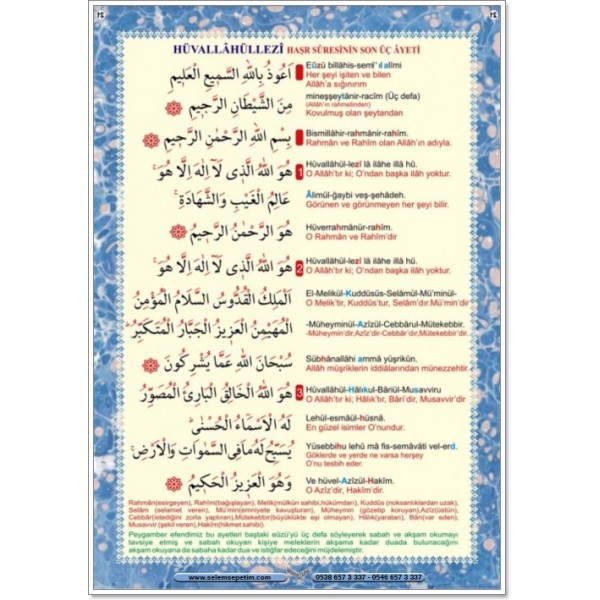 HÜVALLÂHÜLLEZÎ HAŞR SÛRESİNİN SON ÜÇ ÂYETİ
اَعُوذُ بِاللّٰهِ السَّمِيعِ الْعَلِيمِ
Eûzü billâhis-semî'ıl alîmi
Her şeyi işiten ve bilen
Allâh'a sığınırım
مِنَ الشَّيْطَانِ الرَّجِيمِ
mineşşeytânir-racîm (Üç defa)
(Allâh'ın rahmetinden)
Kovulmuş olan şeytandan
بِسْمِ اللّٰهِ الرَّحْمٰنِ الرَّحِيمِ
Bismillâhir-rahmânir-rahîm.
Rahmân ve Rahîm olan Allâh'ın adıyla.
1 هُوَ اللّٰهُ الَّذِى لَٓا اِلٰهَ اِلَّا هُوَ
Hüvallâhül-lezî lâ ilâhe illâ hû.
O Allâh'tır ki; O'ndan başka ilâh yoktur.
عَالِمُ الْغَيْبِ وَالشَّهَادَةِ
Âlimül-ğaybi veş-şehâdeh.
Görünen ve görünmeyen her şeyi bilir.
هُوَ الرَّحْمٰنُ الرَّحِيمُ
Hüverrahmânür-rahîm.
O Rahmân ve Rahîm'dir
2 هُوَ اللّٰهُ الَّذِى لَٓا اِلٰهَ اِلَّا هُوَ
Hüvallâhül-lezî lâ ilâhe illâ hû.
O Allâh'tır ki; O'ndan başka ilâh yoktur.
اَلْمَلِكُ الْقُدُّوسُ السَّلَامُ الْمُؤْمِنُ
El-Melikül-Kuddûsüs-Selâmül-Mü'minül-
O Melik'tir, Kuddûs'tur, Selâm'dır.Mü'min'dir
الْمُهَيْمِنُ الْعَزِيزُ الْجَبَّارُ الْمُتَكَبِّرُ
-Müheyminül-Azîzül-Cebbârul-Mütekebbir.
-Müheymin'dir, Azîz'dir-Cebbâr'dır,Mütekebbir'dir.
سُبْحَانَ اللّٰهِ عَمَّا يُشْرِكُونَ
Sübhânallâhi ammâ yüşrikûn.
Allâh müşriklerin iddiâlarından münezzehtir.
3 هُوَ اللّٰهُ الْخَالِقُ الْبَارِئُ الْمُصَوِّرُ
Hüvallâhül-Hâlıkul-Bâriül-Musavviru
O Allâh'tır ki; Hâlık'tır, Bârî'dir, Musavvir'dir
لَهُ الْاَسْمَٓاءُ الْحُسْنٰى
Lehül-esmâül-hüsnâ.
En güzel isimler O'nundur.
يُسَبِّحُ لَهُ مَا فِى السَّمٰوَاتِ وَالْاَرْضِ
Yüsebbihu lehû mâ fis-semâvâti vel-erd.
Göklerde ve yerde ne varsa herşey
O'nu tesbih eder.
وَهُوَ الْعَزِيزُ الْحَكِيمُ
Ve hüvel-Azîzül-Hakîm.
O Azîz'dir, Hakîm'dir.
Rahmân(esirgeyen), Rahîm(bağışlayan), Melik(mülkün sahibi,hükümdarı), Kuddûs (noksanlıklardan uzak),
Selâm (selamet veren), Mü'min(emniyete kavuşturan), Müheymin (gözetip koruyan),Azîz(üstün),
Cebbâr(istediğini zorla yaptıran),Mütekebbir(büyüklükte eşi olmayan), Hâlık(yaratan), Bâri(var eden),
Musavvir (şekil veren),Hakîm(hikmet sahibi)
Peygamber efendimiz bu ayetleri baştaki eûzü'yü üç defa söyleyerek sabah ve akşam okumayı
tavsiye etmiş ve sabah okuyan kişiye meleklerin akşama kadar duada bulunacağını
akşam okuyana da sabaha kadar dua ve istiğfar edeceğini müjdelemiştir.
www.selemsepetim.com 0538 657 3 337 - 0546 657 3 337